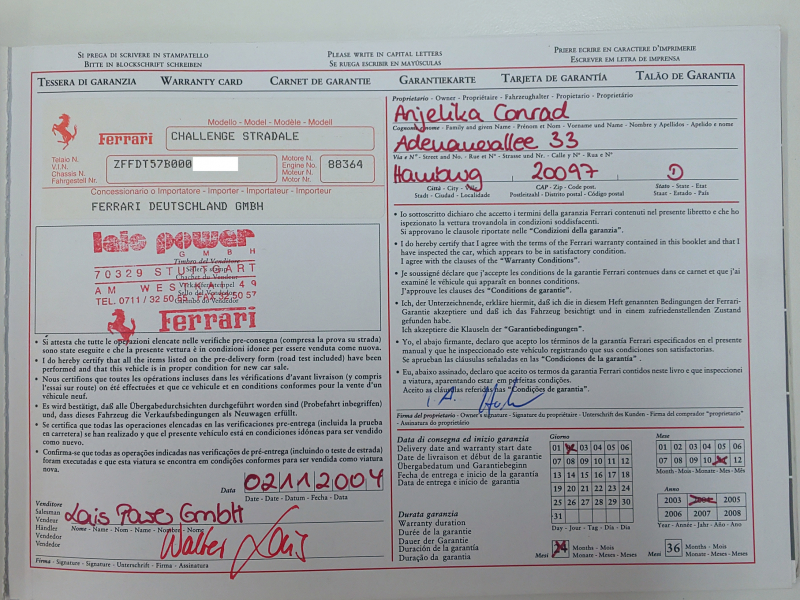 SI PREGA DI SCRIVERE IN STAMPATELLO
BITTE IN BLOCKSCHRIFT SCHREIBEN
PLEASE WRITE IN CAPITAL LETTERS
SE RUEGA ESCRIBIR EN MAYÚSCULAS
PRIERE ECRIRE EN CARACTERE D'IMPRIMERIE
ESCREVER EM LETRA DE IMPRENSA
TESSERA DI GARANZIA WARRANTY CARD CARNET DE GARANTIE GARANTIEKARTE TARJETA DE GARANTÍA TALÃO DE GARANTIA
Modello - Model - Modèle - Modell
Ferrari
CHALLENGE STRADALE
Telaio N.
V.I.N.
Chassis N.
Fahrgestell Nr.
ZFFDT57B000
Motore N.
Engine No.
Moteur N.
Motor Nr.
80364
Concessionario o Importatore - Importer - Importateur - Importeur
FERRARI DEUTSCHLAND GMBH
lais power
GMBH
70329 STUTTGART
AM WESTKAI 49
TEL. 0711 / 32 50
Timbro del Venditore
Ferrari
• Si attesta che tutte le operazioni elencate nelle verifiche pre-consegna (compresa la prova su strada)
sono state eseguite e che la presente vettura è in condizioni idonee per essere venduta come nuova.
• I do hereby certify that all the items listed on the pre-delivery form (road test included) have been
performed and that this vehicle is in proper condition for new car sale.
• Nous certifions que toutes les opérations incluses dans les vérifications d'avant livraison (y compris
l'essai sur route) on été effectuées et que ce vehicule et en conditions conformes pour la vente d'un
véhicule neuf.
• Es wird bestätigt, daß alle Übergabedurchsichten durchgeführt worden sind (Probefahrt inbegriffen)
und, dass dieses Fahrzeug die Verkaufsbedingungen als Neuwagen erfüllt.
• Se certifica que todas las operaciones elencadas en las verificaciones pre-entrega (incluida la prueba
en carretera) se han realizado y que el presente vehículo está en condiciones idóneas para ser vendido
como nuevo.
• Confirma-se que todas as operações indicadas nas verificações de pré-entrega (incluindo o teste de estrada)
foram executadas e que esta viatura se encontra em condições conformes para ser vendida como viatura
nova.
Data 02112004
Date - Date - Datum - Fecha - Data
Venditore
Salesman
Vendeur
Händler
Vendedor
Vendedor
Lais Power GmbH
Nome - Name - Nom - Name - Nombre - Nome
Walter Lais
Firma - Signature - Signature - Unterschrift - Firma - Assinatura
Proprietario - Owner - Propriétaire - Fahrzeughalter - Propietario - Proprietário
Anjelika Conrad
Cognome nome - Family and given Name - Prénom et Nom - Vorname und Name - Nombre y Apellidos - Apelido e nome
Adenauerallee 33
Via e N° - Street and No. - Rue et N° - Strasse und Nr. - Calle y N° - Rua e N°
Hamburg 20097 D
Città - City - Ville
Stadt - Ciudad - Localidade
CAP - Zip - Code post.
Postleitzahl - Distrito postal - Código postal
Stato - State - Etat
Staat - Estado - País
• Io sottoscritto dichiaro che accetto i termini della garanzia Ferrari contenuti nel presente libretto e che ho
ispezionato la vettura trovandola in condizioni soddisfacenti.
Si approvano le clausole riportate nelle "Condizioni della garanzia".
• I do hereby certify that I agree with the terms of the Ferrari warranty contained in this booklet and that I
have inspected the car, which appears to be in satisfactory condition.
I agree with the clauses of the "Warranty Conditions".
• Je soussigné déclare que j'accepte les conditions de la garantie Ferrari contenues dans ce carnet et que j'ai
examiné le véhicule qui apparaît en bonnes conditions.
J'approuve les clauses des "Conditions de garantie".
• Ich, der Unterzeichnende, erkläre hiermit, daß ich die in diesem Heft genannten Bedingungen der Ferrari-
Garantie akzeptiere und daß ich das Fahrzeug besichtigt und in einem zufriedenstellenden Zustand
gefunden habe.
Ich akzeptiere die Klauseln der "Garantiebedingungen".
• Yo, el abajo firmante, declaro que acepto los términos de la garantía Ferrari especificados en el presente
manual y que he inspeccionado este vehículo registrando que sus condiciones son satisfactorias.
Se aprueban las cláusulas señaladas en las "Condiciones de la garantía".
• Eu, abaixo assinado, declaro que aceito os termos da garantia Ferrari contidos neste livro e que inspeccionei
a viatura, aparentando estar em perfeitas condições.
Aceito as cláusulas referidas nas "Condições de garantia".
i.A.
Firma del proprietario - Owner's signature - Signature du propriétaire - Unterschrift des Kunden - Firma del comprador "propietario"
- Assinatura do proprietário
Data di consegna ed inizio garanzia
Delivery date and warranty start date
Date de livraison et début de la garantie
Übergabedatum und Garantiebeginn
Fecha de entrega e inicio de garantía
Data de entrega e início de garantia
Giorno
01 02 03 04 05 06
07 08 09 10 11 12
13 14 15 16 17 18
19 20 21 22 23 24
25 26 27 28 29 30
31
Day - Jour - Tag - Día - Dia
Mese
01 02 03 04 05 06
07 08 09 10 11 12
Month - Mois - Monat - Mes - Mês
Anno
2003 2004 2005
2006 2007 2008
Year - Année - Jahr - Año - Ano
Durata garanzia
Warranty duration
Durée de la garantie
Dauer der Garantie
Duración de la garantía
Duração da garantia
Mesi 24 Months - Mois
Monate - Meses - Meses
Mesi 36 Months - Mois
Monate - Meses - Meses